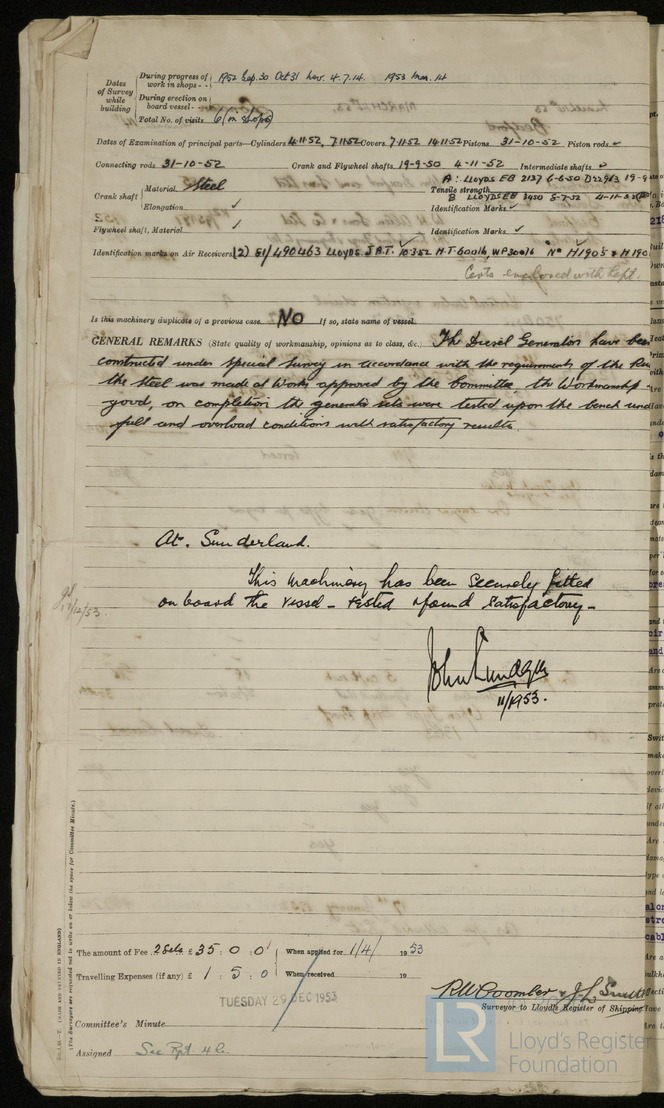 Dates of Survey while building
During progress of work in shops - - 1952 Sep. 30 Oct 31 Nov. 4. 7. 14. 1953 Mar. 14
During erection on board vessel - - -
Total No. of visits 6 (in shops)
Dates of Examination of principal parts—Cylinders 4.11.52, 7.11.52 Covers 7.11.52 14.11.52 Pistons 31-10-52 Piston rods
Connecting rods 31-10-52 Crank and Flywheel shafts 19-9-50 4-11-52 Intermediate shafts
Crank shaft Material Steel Tensile strength A: LLOYDS EB 2137 6-6-50 D22963 19-9
Elongation ✓ Identification Marks ✓ B LLOYDS EB 3450 5-7-52 4-11-52
Flywheel shaft, Material ✓ Identification Marks ✓
Identification marks on Air Receivers (2) 51/490463 LLOYDS J.B.T. 10352 H.T. 600 lb, W.P 300 lb No H1905 & H190
Certs enclosed with Rept.
Is this machinery duplicate of a previous case NO If so, state name of vessel
GENERAL REMARKS (State quality of workmanship, opinions as to class, &c.) The Diesel Generators have been
constructed under special survey in accordance with the requirements of the
the steel was made at Works approved by the Committee the Workmanship
good, on completion the generator sets were tested upon the bench
full and overload conditions with satisfactory results.
At. Sunderland.
This machinery has been securely fitted
on board the vessel - tested & found satisfactory -
John
11/1953.
/12/53.
(The Surveyors are requested not to write on or below the space for Committee Minute.)
(MADE AND PRINTED IN ENGLAND)
The amount of Fee 2 Sets £ 35 : 0 : 0 When applied for 1/4/ 19 53
Travelling Expenses (if any) £ 1 : 5 : 0 When received 19
TUESDAY 29 DEC 1953
R W Coomber & J L Smith
Surveyor to Lloyd's Register of Shipping
Committee's Minute
Assigned See Rpt 4 b.
LR
Lloyd's Register
Foundation